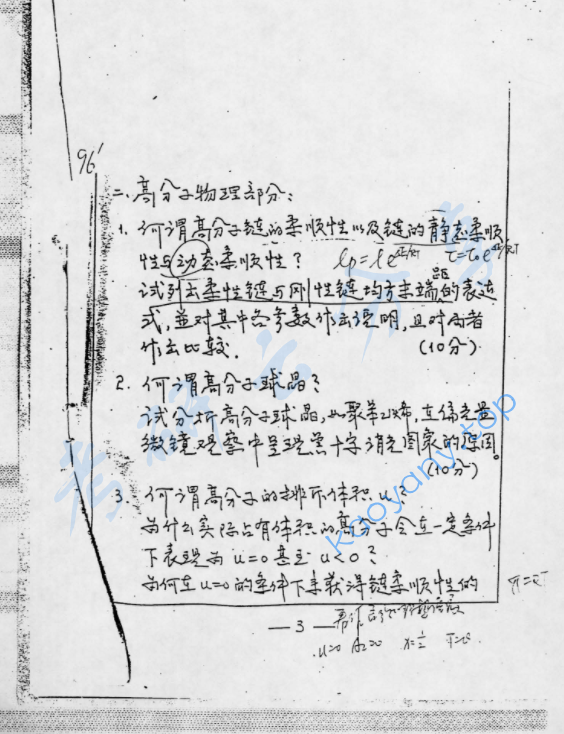 96'
二、高分子物理部分：
1. 何谓高分子链的柔顺性以及链的静态柔顺
性与动态柔顺性？
试列出柔性链与刚性链均方末端距的表达
式，並对其中各参数作出说明，且对两者
作出比较.  (10分)
2. 何谓高分子球晶？
试分析高分子球晶，如聚苯乙烯，在偏光显
微镜观察中呈现黑十字消光图象的原因。
(10分)
3. 何谓高分子的排斥体积 u？
为什么实际占有体积的高分子会在一定条件
下表现为 u=0 甚至 u<0？
为何在 u=0 的条件下来获得链柔顺性的
— 3 —
kaoyany.top